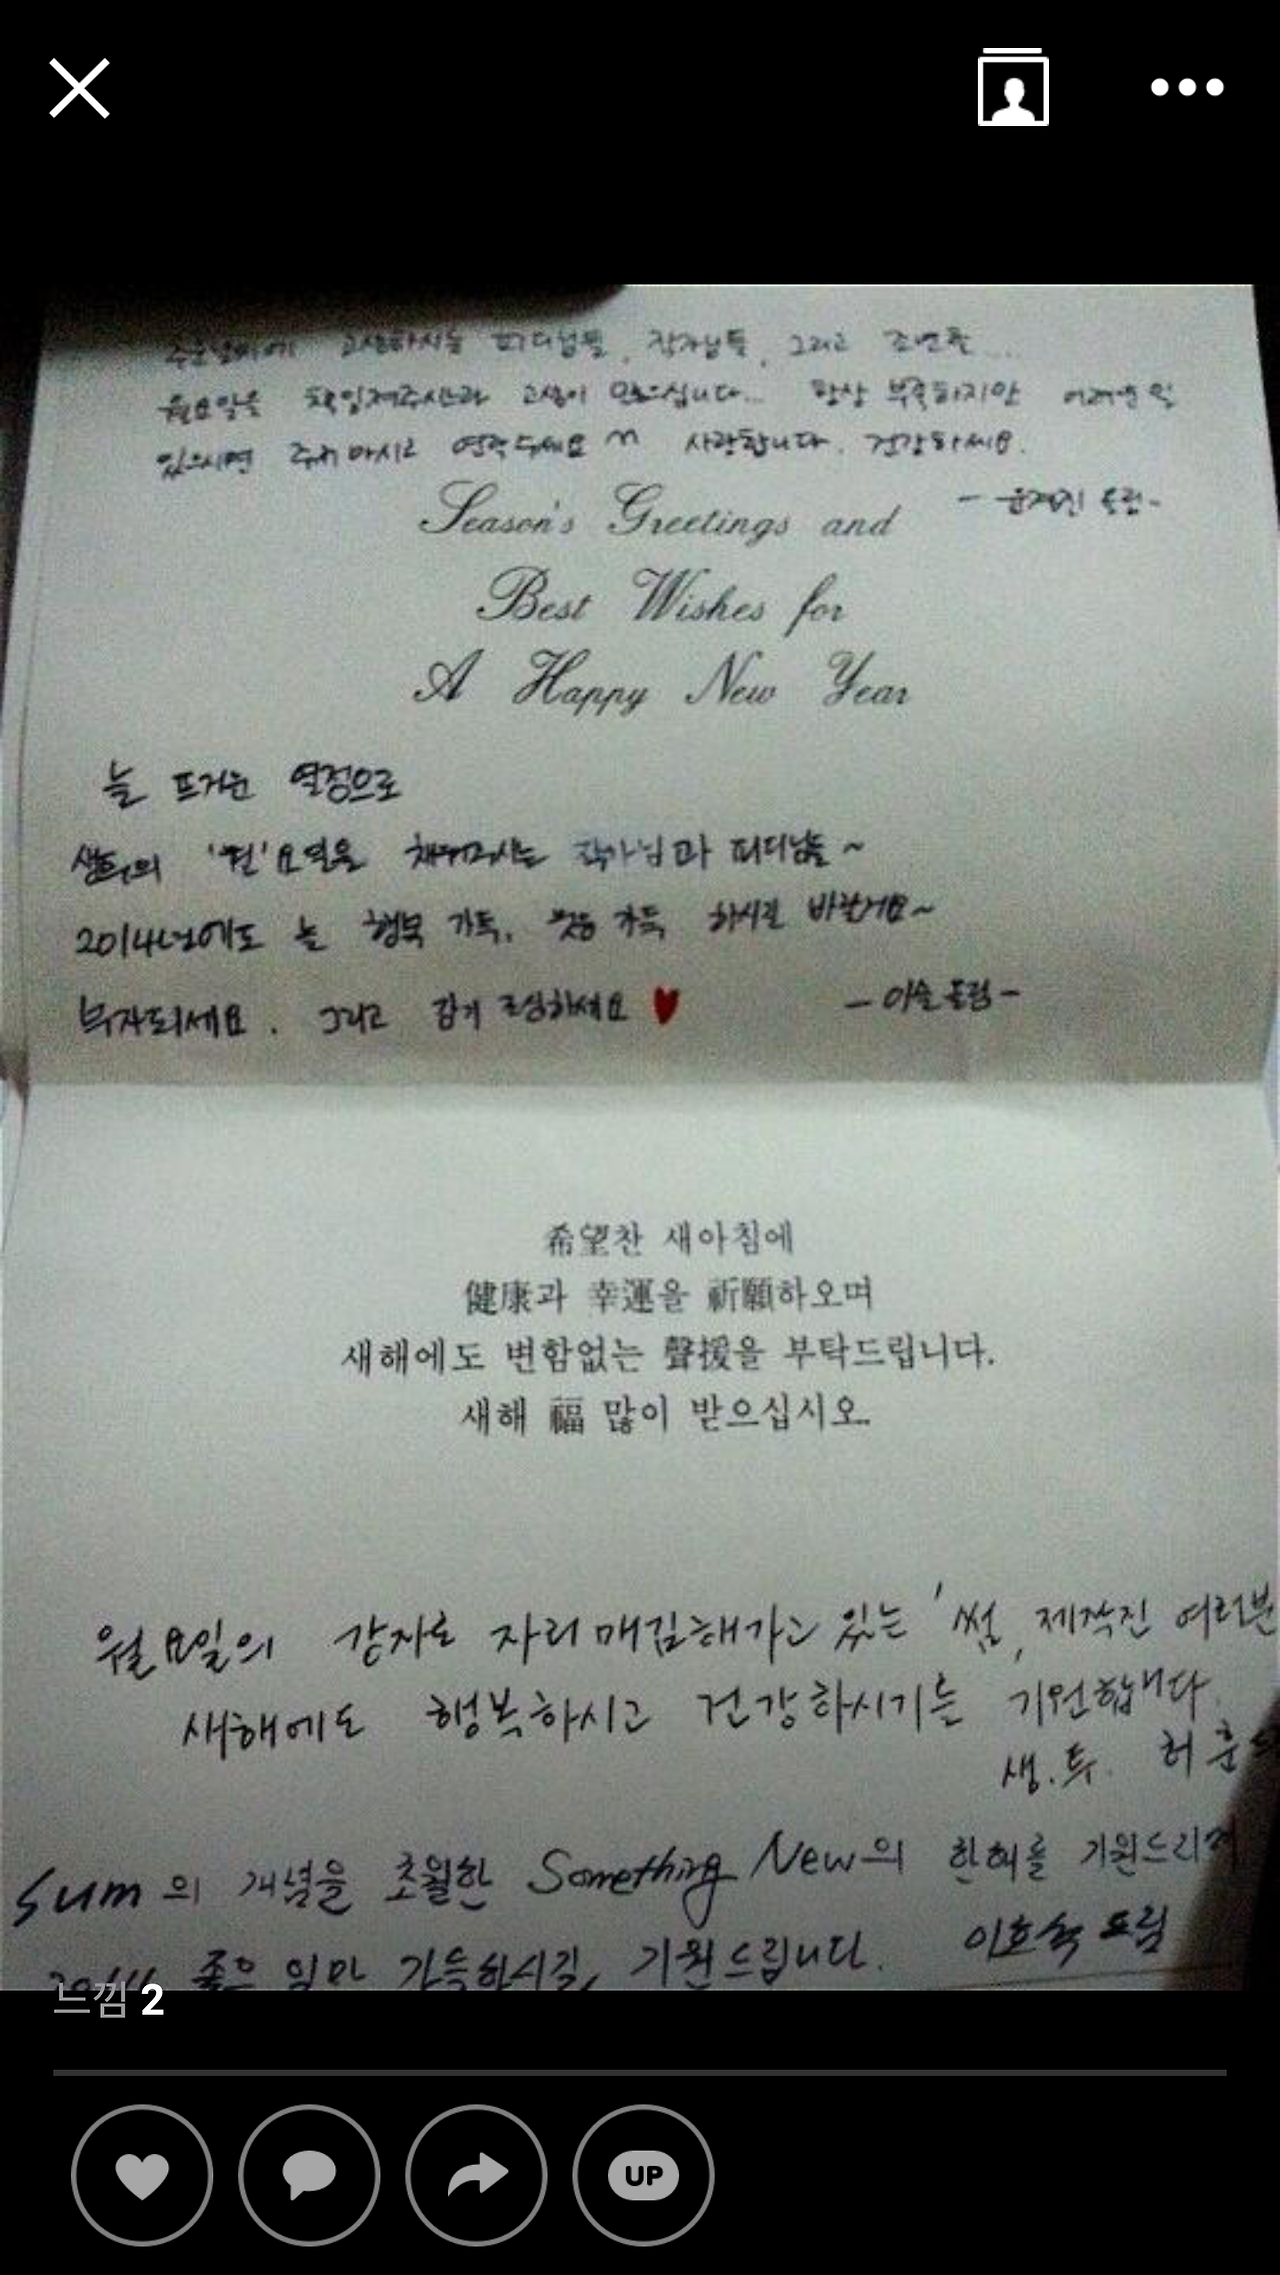 고생하시는 피디님들, 작가님들, 그리고 조연출...
월요일을 책임져주시느라 고생이 많으십니다... 항상 부족하지만 어려운 일
있으시면 주저 마시고 연락주세요 ^^ 사랑합니다. 건강하세요.
드림-
Season's Greetings and
Best Wishes for
A Happy New Year
늘 뜨거운 열정으로
생투의 '월'요일을 채워주시는 작가님과 피디님들~
2014년에도 늘 행복 가득, 웃음 가득 하시길 바랄게요~
부자되세요. 그리고 감기 조심하세요 ♥
-이슬 드림-
希望찬 새아침에
健康과 幸運을 祈願하오며
새해에도 변함없는 聲援을 부탁드립니다.
새해 福 많이 받으십시오.
월요일의 강자로 자리매김해가고 있는 '썸, 제작진 여러분
새해에도 행복하시고 건강하시기를 기원합니다.
생.투. 허
Sum의 개념을 초월한 Something New의 한해를 기원드리며
2014 좋은 일만 가득하시길, 기원드립니다. 이호숙 드림
느낌 2
UP